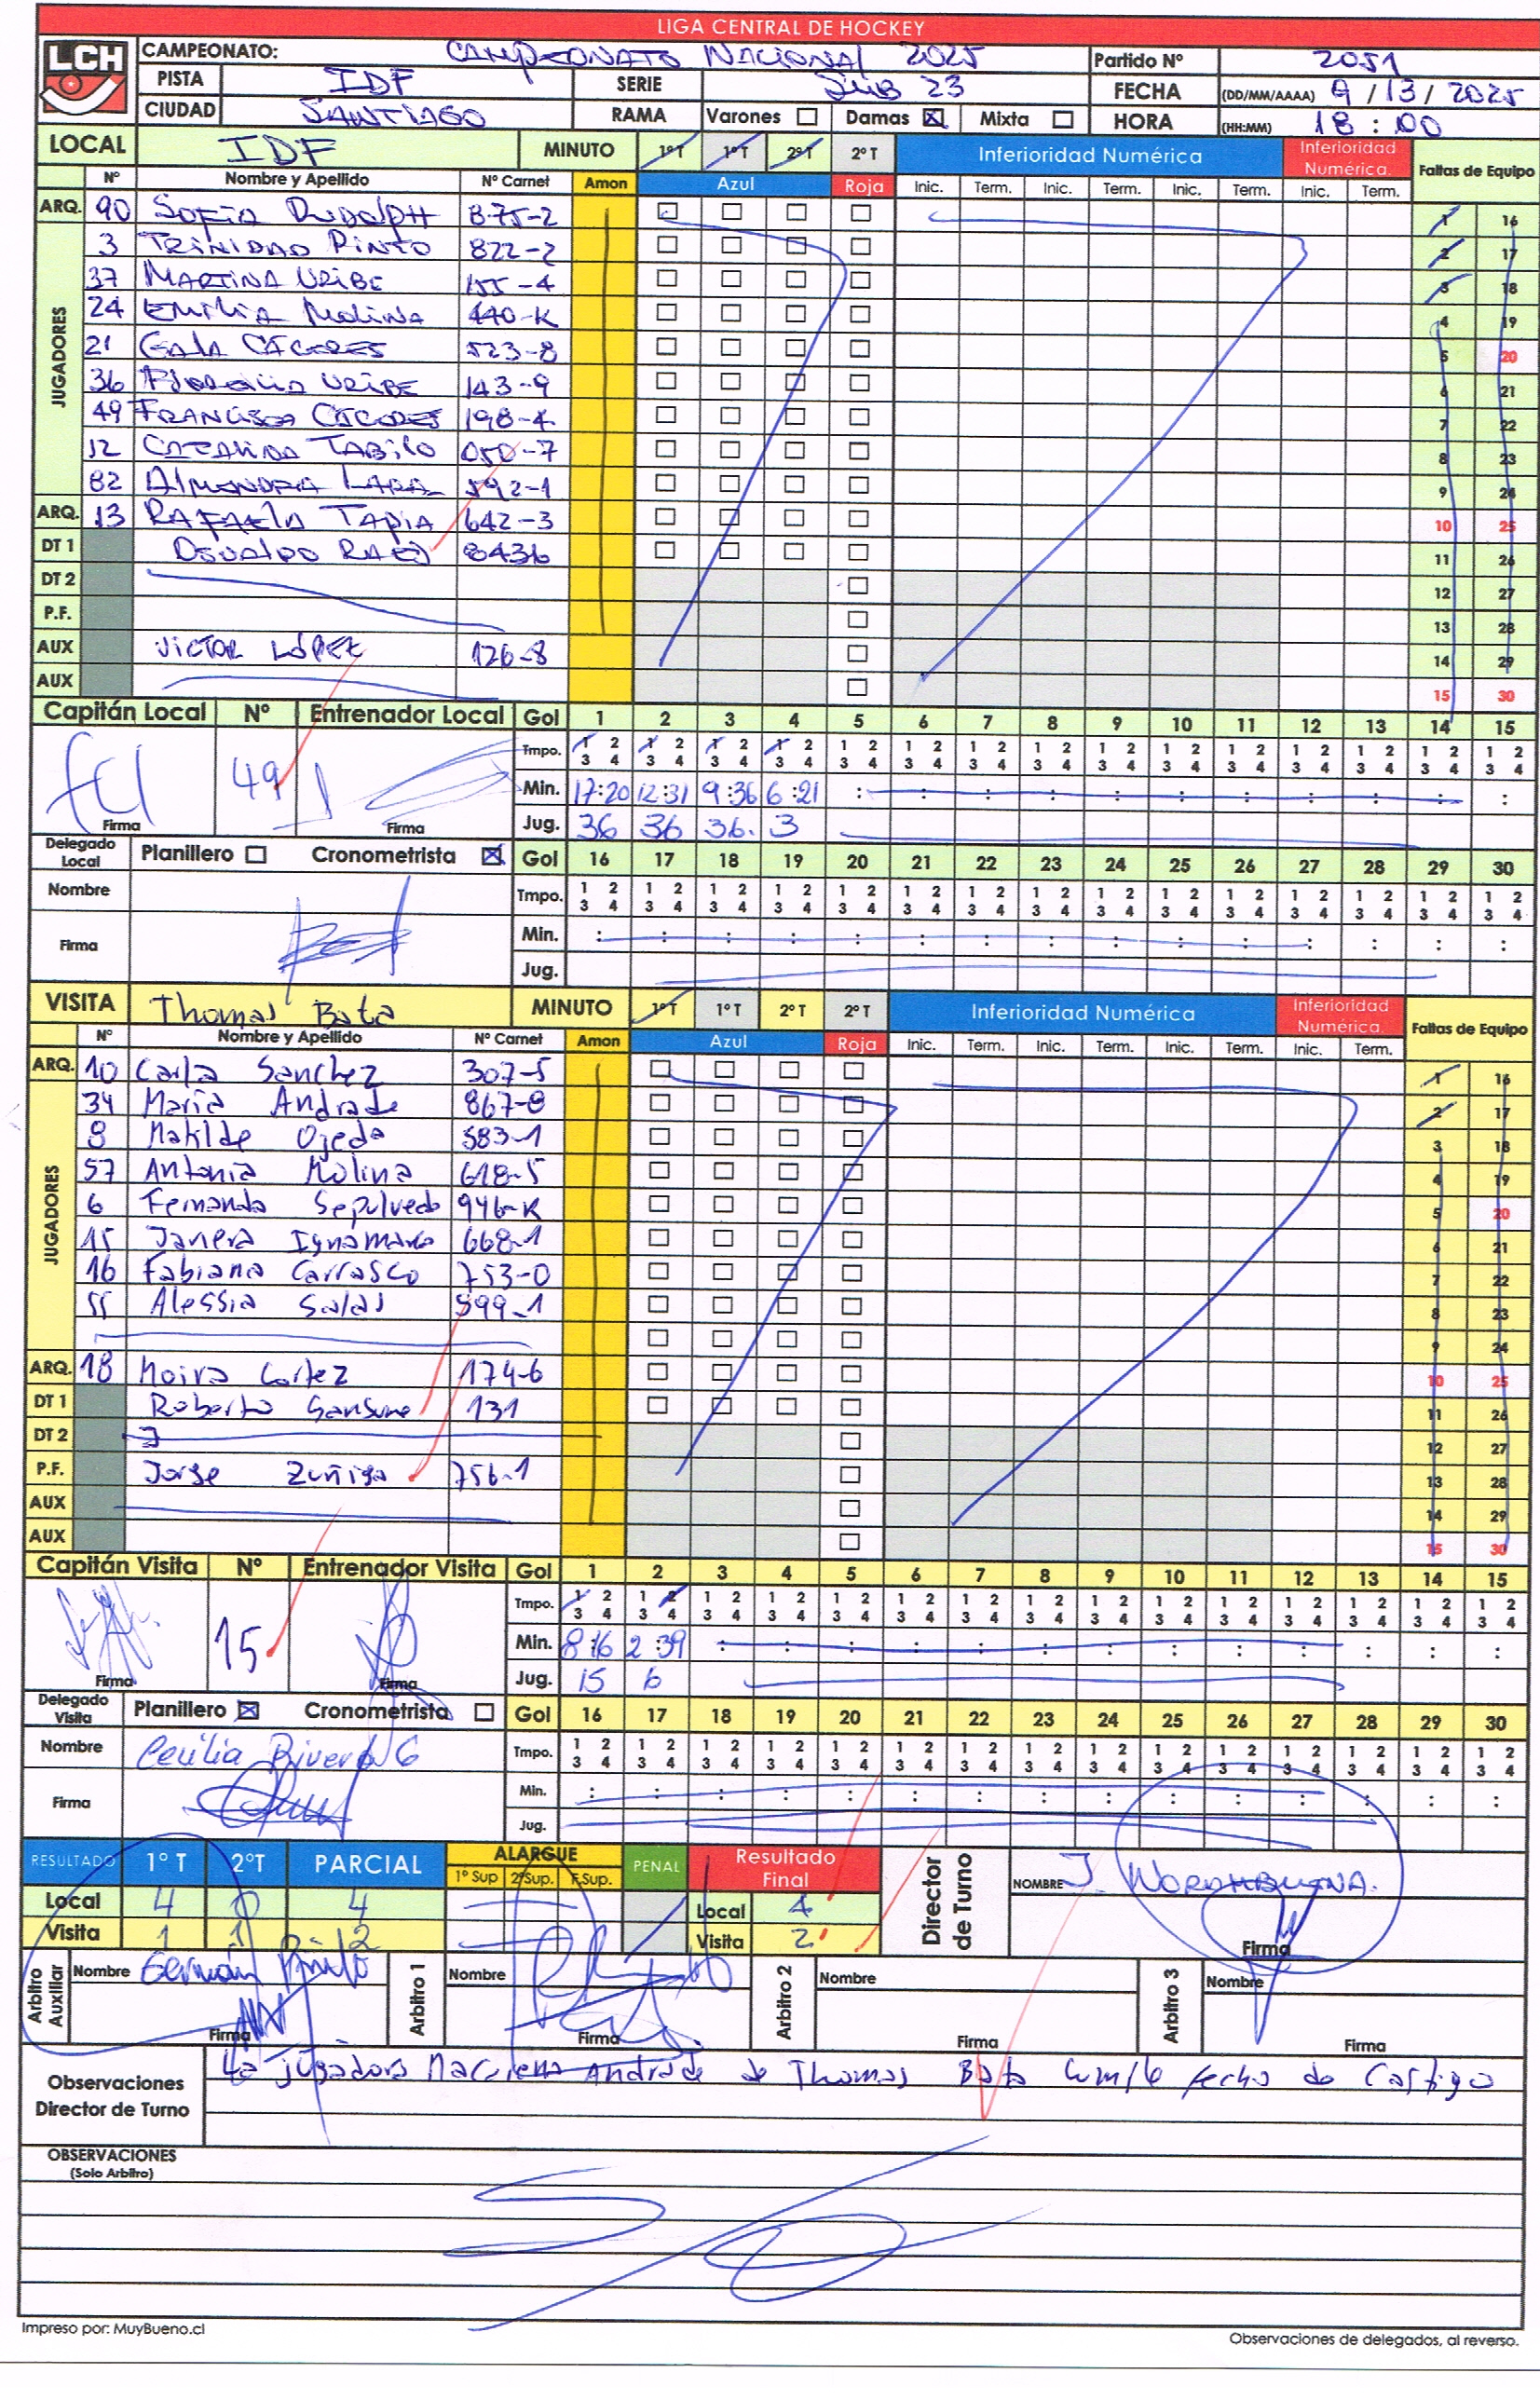 LIGA CENTRAL DE HOCKEY
LCH
CAMPEONATO: CAMPEONATO NACIONAL 2025 Partido Nº 2051
PISTA IDF SERIE SUB 23 FECHA (DD/MM/AAAA) 9/13/2025
CIUDAD SANTIAGO RAMA Varones ☐ Damas ☒ Mixta ☐ HORA (HH:MM) 18:00
LOCAL IDF MINUTO 1º T 1º T 2º T 2º T Inferioridad Numérica Inferioridad Numérica. Faltas de Equipo
Nº Nombre y Apellido Nº Carnet Amon Azul Roja Inic. Term. Inic. Term. Inic. Term. Inic. Term.
JUGADORES
ARQ. 90 SOFÍA RUDOLPH 875-2 1 16
3 TRINIDAD PINTO 822-2 2 17
37 MARTINA URIBE 155-4 3 18
24 EMILIA MOLINA 440-K 4 19
21 GALA CÁCERES 523-8 5 20
36 URIBE 143-9 6 21
49 FRANCISCA CÁCERES 198-4 7 22
12 CATALINA TABILO 050-7 8 23
82 ALMENDRA LARA 592-1 9 24
ARQ. 13 RAFAELA TAPIA 642-3 10 25
DT 1 OSVALDO 8436 11 26
DT 2 12 27
P.F. 13 28
AUX VICTOR LÓPEZ 126-8 14 29
AUX 15 30
Capitán Local Nº Entrenador Local Gol 1 2 3 4 5 6 7 8 9 10 11 12 13 14 15
Tmpo. 1 2 3 4 1 2 3 4 1 2 3 4 1 2 3 4 1 2 3 4 1 2 3 4 1 2 3 4 1 2 3 4 1 2 3 4 1 2 3 4 1 2 3 4 1 2 3 4 1 2 3 4 1 2 3 4 1 2 3 4
49 Min. 17:20 12:31 9:36 6:21
Firma Firma Jug. 36 36 36. 3
Delegado Local Planillero ☐ Cronometrista ☒ Gol 16 17 18 19 20 21 22 23 24 25 26 27 28 29 30
Nombre Tmpo. 1 2 3 4 1 2 3 4 1 2 3 4 1 2 3 4 1 2 3 4 1 2 3 4 1 2 3 4 1 2 3 4 1 2 3 4 1 2 3 4 1 2 3 4 1 2 3 4 1 2 3 4 1 2 3 4 1 2 3 4
Firma Min.
Jug.
VISITA Thomas Bata MINUTO 1º T 1º T 2º T 2º T Inferioridad Numérica Inferioridad Numérica. Faltas de Equipo
Nº Nombre y Apellido Nº Carnet Amon Azul Roja Inic. Term. Inic. Term. Inic. Term. Inic. Term.
JUGADORES
ARQ. 10 Carla Sanchez 307-5 1 16
34 María Andrade 867-8 2 17
8 Matilde Ojeda 583-1 3 18
57 Antonia Molina 618-5 4 19
6 Fernanda Sepulveda 946-K 5 20
15 668-1 6 21
16 Fabiana Carrasco 753-0 7 22
55 Alessia Salas 599-1 8 23
9 24
ARQ. 18 Moira Cortez 174-6 10 25
DT 1 Roberto 131 11 26
DT 2 12 27
P.F. Jorge Zuñiga 756-1 13 28
AUX 14 29
AUX 15 30
Capitán Visita Nº Entrenador Visita Gol 1 2 3 4 5 6 7 8 9 10 11 12 13 14 15
Tmpo. 1 2 3 4 1 2 3 4 1 2 3 4 1 2 3 4 1 2 3 4 1 2 3 4 1 2 3 4 1 2 3 4 1 2 3 4 1 2 3 4 1 2 3 4 1 2 3 4 1 2 3 4 1 2 3 4 1 2 3 4
15 Min. 8:16 2:39
Firma Firma Jug. 15 6
Delegado Visita Planillero ☒ Cronometrista ☐ Gol 16 17 18 19 20 21 22 23 24 25 26 27 28 29 30
Nombre Cecilia Rivera G Tmpo. 1 2 3 4 1 2 3 4 1 2 3 4 1 2 3 4 1 2 3 4 1 2 3 4 1 2 3 4 1 2 3 4 1 2 3 4 1 2 3 4 1 2 3 4 1 2 3 4 1 2 3 4 1 2 3 4 1 2 3 4
Firma Min.
Jug.
RESULTADO 1º T 2ºT PARCIAL ALARGUE 1º Sup 2ºSup. F.Sup. PENAL Resultado Final Director de Turno NOMBRE J. NORAMBUENA.
Local 4 0 4 Local 4
Visita 1 1 2 Visita 2 Firma
Arbitro Auxiliar Nombre Germán Pinto Arbitro 1 Nombre Arbitro 2 Nombre Arbitro 3 Nombre
Firma Firma Firma Firma
Observaciones Director de Turno La jugadora Macarena Andrade de Thomas Bata cumple fecha de Castigo
OBSERVACIONES
(Solo Arbitro)
Impreso por: MuyBueno.cl
Observaciones de delegados, al reverso.